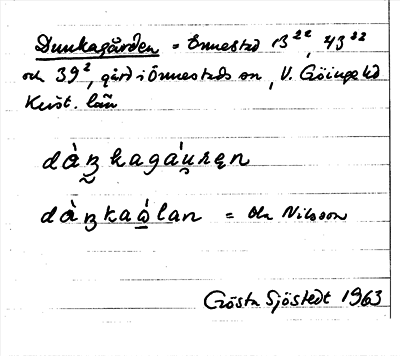 Dunkagården = Önnestad 13²², 43²²
och 39², gård i Önnestads sn, V. Göinge hd
Krist. län
dàŋkagáu̯ren
dàŋkaọ́lan = Ola Nilsson
Gösta Sjöstedt 1963